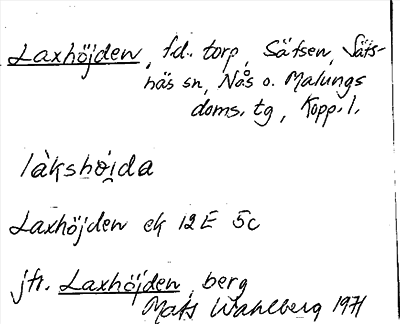 Laxhöjden, f.d. torp, Säfsen, Säfs-
näs sn, Nås o. Malungs
doms. tg, Kopp. l.
làkshòjda
Laxhöjden ek 12E 5c
jfr. Laxhöjden, berg
Mats Wahlberg 1971